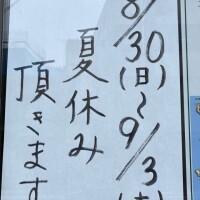 8/30(日)〜9/3(木)
夏休み
頂きます